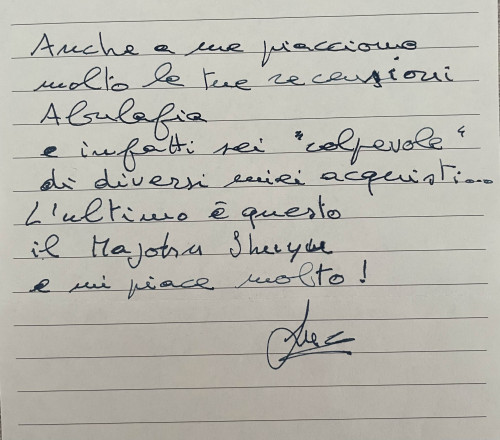 Anche a me piacciono
molto le tue recensioni
Abulafia
e infatti sei "colpevole"
di diversi miei acquisti...
L'ultimo è questo
il Majohn Shuyu
e mi piace molto!